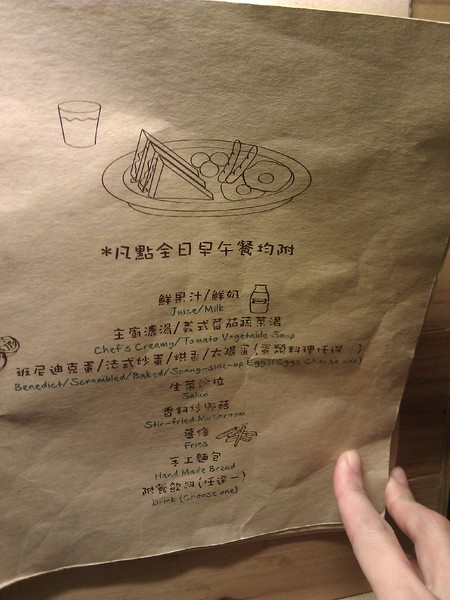 *凡點全日早午餐均附
鮮果汁/鮮奶
Juice/Milk
主廚濃湯/義式番茄蔬菜湯
Chef's Creamy/Tomato Vegetable Soup
班尼迪克蛋/法式炒蛋/烘蛋/太陽蛋(蛋類料理任選 )
Benedict/Scrambled/Baked/Sunny-side-up Eggs(Eggs Choose one)
生菜沙拉
Salad
香料炒磨菇
Stir-fried Mushroom
薯條
Fries
手工麵包
Hand Made Bread
附餐飲料(任選一)
Drink (Choose one)